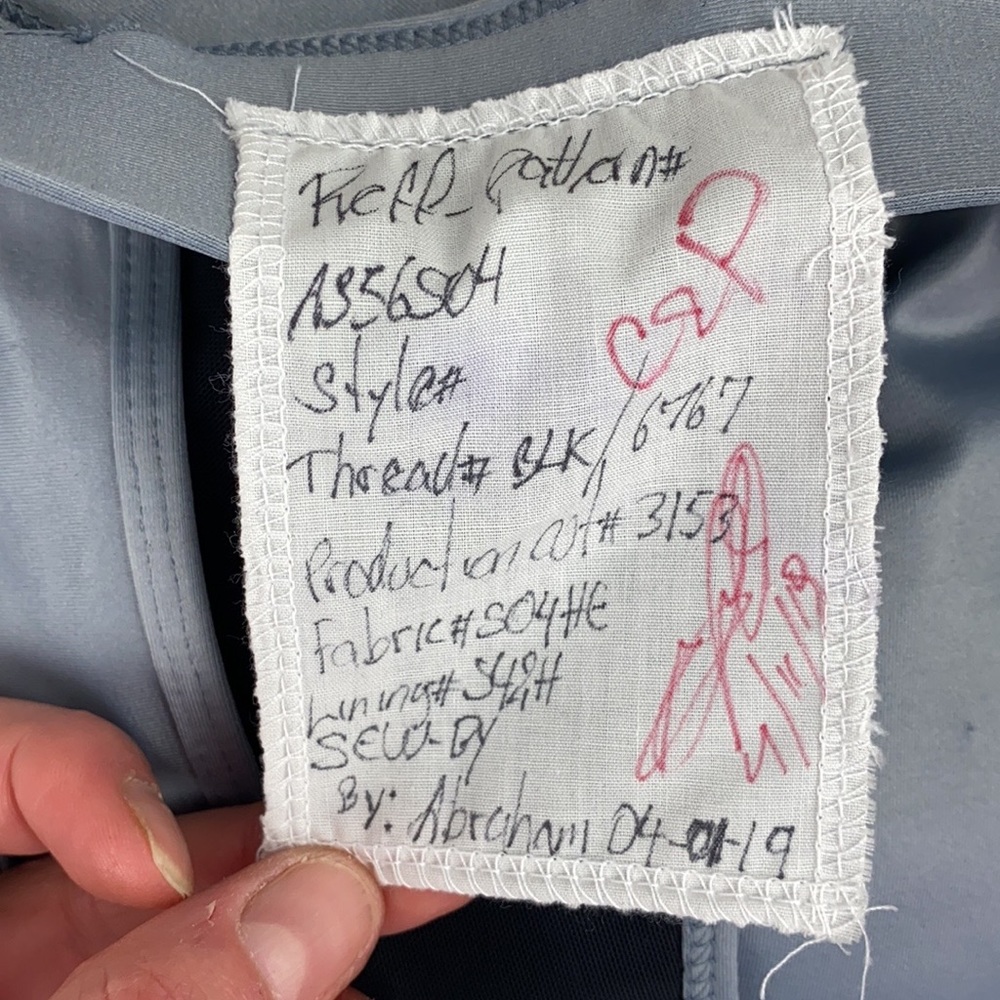 Reff_pattern#
1S56S04
Style#
Thread# BLK/6767
Production cut# 3153
Fabric# S04HE
Lining#
SEW-BY
By: Abraham 04-01-19